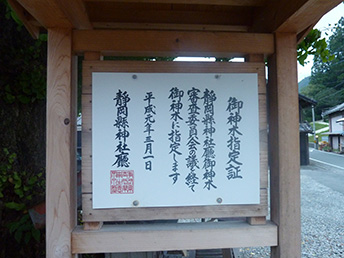 御神水指定之証
静岡縣神社廳御神水
審査委員会の議を経て
御神水に指定します
平成元年三月一日
静岡縣神社廳